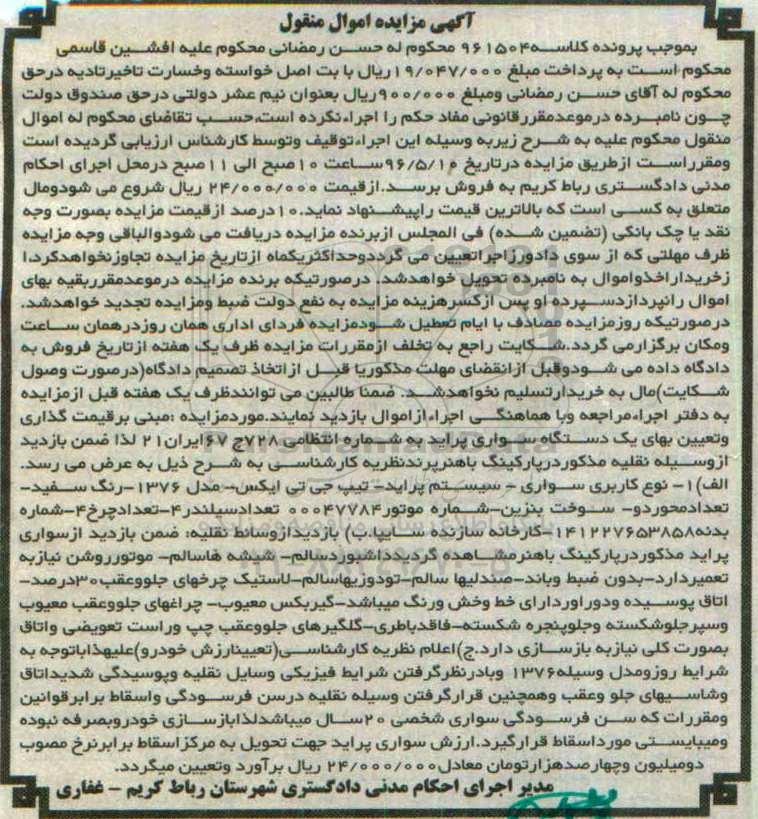 آگهی مزایده اموال منقول
بموجب پرونده کلاسه ۹۶۱۵۰۴ محکوم له حسن رمضانی محکوم علیه افشین قاسمی
محکوم است به پرداخت مبلغ ۱۹/۰۴۷/۰۰۰ریال با بت اصل خواسته وخسارت تاخیرتادیه درحق
محکوم له آقای حسن رمضانی ومبلغ ۹۰۰/۰۰۰ریال بعنوان نیم عشر دولتی درحق صندوق دولت
چون نامبرده درموعدمقررقانونی مفاد حکم را اجراءنکرده است،حسب تقاضای محکوم له اموال
منقول محکوم علیه به شرح زیربه وسیله این اجراءتوقیف وتوسط کارشناس ارزیابی گردیده است
ومقرراست ازطریق مزایده درتاریخ ۹۶/۵/۱۰ساعت ۱۰صبح الی ۱۱صبح درمحل اجرای احکام
مدنی دادگستری رباط کریم به فروش برسد.ازقیمت ۲۴/۰۰۰/۰۰۰ ریال شروع می شودومال
متعلق به کسی است که بالاترین قیمت راپیشنهاد نماید.۱۰درصد ازقیمت مزایده بصورت وجه
نقد یا چک بانکی (تضمین شده) فی المجلس ازبرنده مزایده دریافت می شودوالباقی وجه مزایده
ظرف مهلتی که از سوی دادورزاجراتعیین می گرددوحداکثریکماه ازتاریخ مزایده تجاوزنخواهدکرد.ا
زخریداراخذواموال به نامبرده تحویل خواهدشد. درصورتیکه برنده مزایده درموعدمقرربقیه بهای
اموال رانپردازدسپرده او پس ازکسرهزینه مزایده به نفع دولت ضبط ومزایده تجدید خواهدشد.
درصورتیکه روزمزایده مصادف با ایام تعطیل شودمزایده فردای اداری همان روزدرهمان ساعت
ومکان برگزارمی گردد.شکایت راجع به تخلف ازمقررات مزایده ظرف یک هفته ازتاریخ فروش به
دادگاه داده می شودوقبل ازانقضای مهلت مذکوریا قبل ازاتخاذ تصمیم دادگاه(درصورت وصول
شکایت)مال به خریدارتسلیم نخواهدشد. ضمنا طالبین می توانندظرف یک هفته قبل ازمزایده
به دفتر اجراءمراجعه وبا هماهنگی اجراءازاموال بازدید نمایند.موردمزایده :مبنی برقیمت گذاری
وتعیین بهای یک دستگاه سواری پراید به شماره انتظامی ۷۲۸ج ۶۷ایران۲۱ لذا ضمن بازدید
ازوسیله نقلیه مذکوردرپارکینگ باهنرپرندنظریه کارشناسی به شرح ذیل به عرض می رسد.
الف)۱- نوع کاربری سواری - سیستم پراید- تیپ جی تی ایکس- مدل ۱۳۷۶-رنگ سفید-
تعدادمحوردو- سوخت بنزین-شماره موتور۰۰۰۴۷۷۸۴ تعدادسیلندر۴-تعدادچرخ۴-شماره
بدنه۱۴۱۲۲۷۶۵۳۸۵۸-کارخانه سازنده سایپا.ب) بازدیدازوسائط نقلیه: ضمن بازدید ازسواری
پراید مذکوردرپارکینگ باهنرمشاهده گردیدداشبوردسالم- شیشه هاسالم- موتورروشن نیازبه
تعمیردارد-بدون ضبط وباند-صندلیها سالم-تودوزیهاسالم-لاستیک چرخهای جلووعقب۳۰درصد-
اتاق پوسیده ودوراوردارای خط وخش ورنگ میباشد-گیربکس معیوب- چراغهای جلووعقب معیوب
وسپرجلوشکسته وجلوپنجره شکسته-فاقدباطری-گلگیرهای جلووعقب چپ وراست تعویضی واتاق
بصورت کلی نیازبه بازسازی دارد.ج)اعلام نظریه کارشناسی(تعیینارزش خودرو)علیهذاباتوجه به
شرایط روزومدل وسیله۱۳۷۶ وبادرنظرگرفتن شرایط فیزیکی وسایل نقلیه وپوسیدگی شدیداتاق
وشاسیهای جلو وعقب وهمچنین قرارگرفتن وسیله نقلیه درسن فرسودگی واسقاط برابرقوانین
ومقررات که سن فرسودگی سواری شخصی ۲۰سال میباشدلذابازسازی خودروبصرفه نبوده
ومیبایستی مورداسقاط قرارگیرد.ارزش سواری پراید جهت تحویل به مرکزاسقاط برابرنرخ مصوب
دومیلیون وچهارصدهزارتومان معادل۲۴/۰۰۰/۰۰۰ ریال برآورد وتعیین میگردد.
مدیر اجرای احکام مدنی دادگستری شهرستان رباط کریم - غفاری